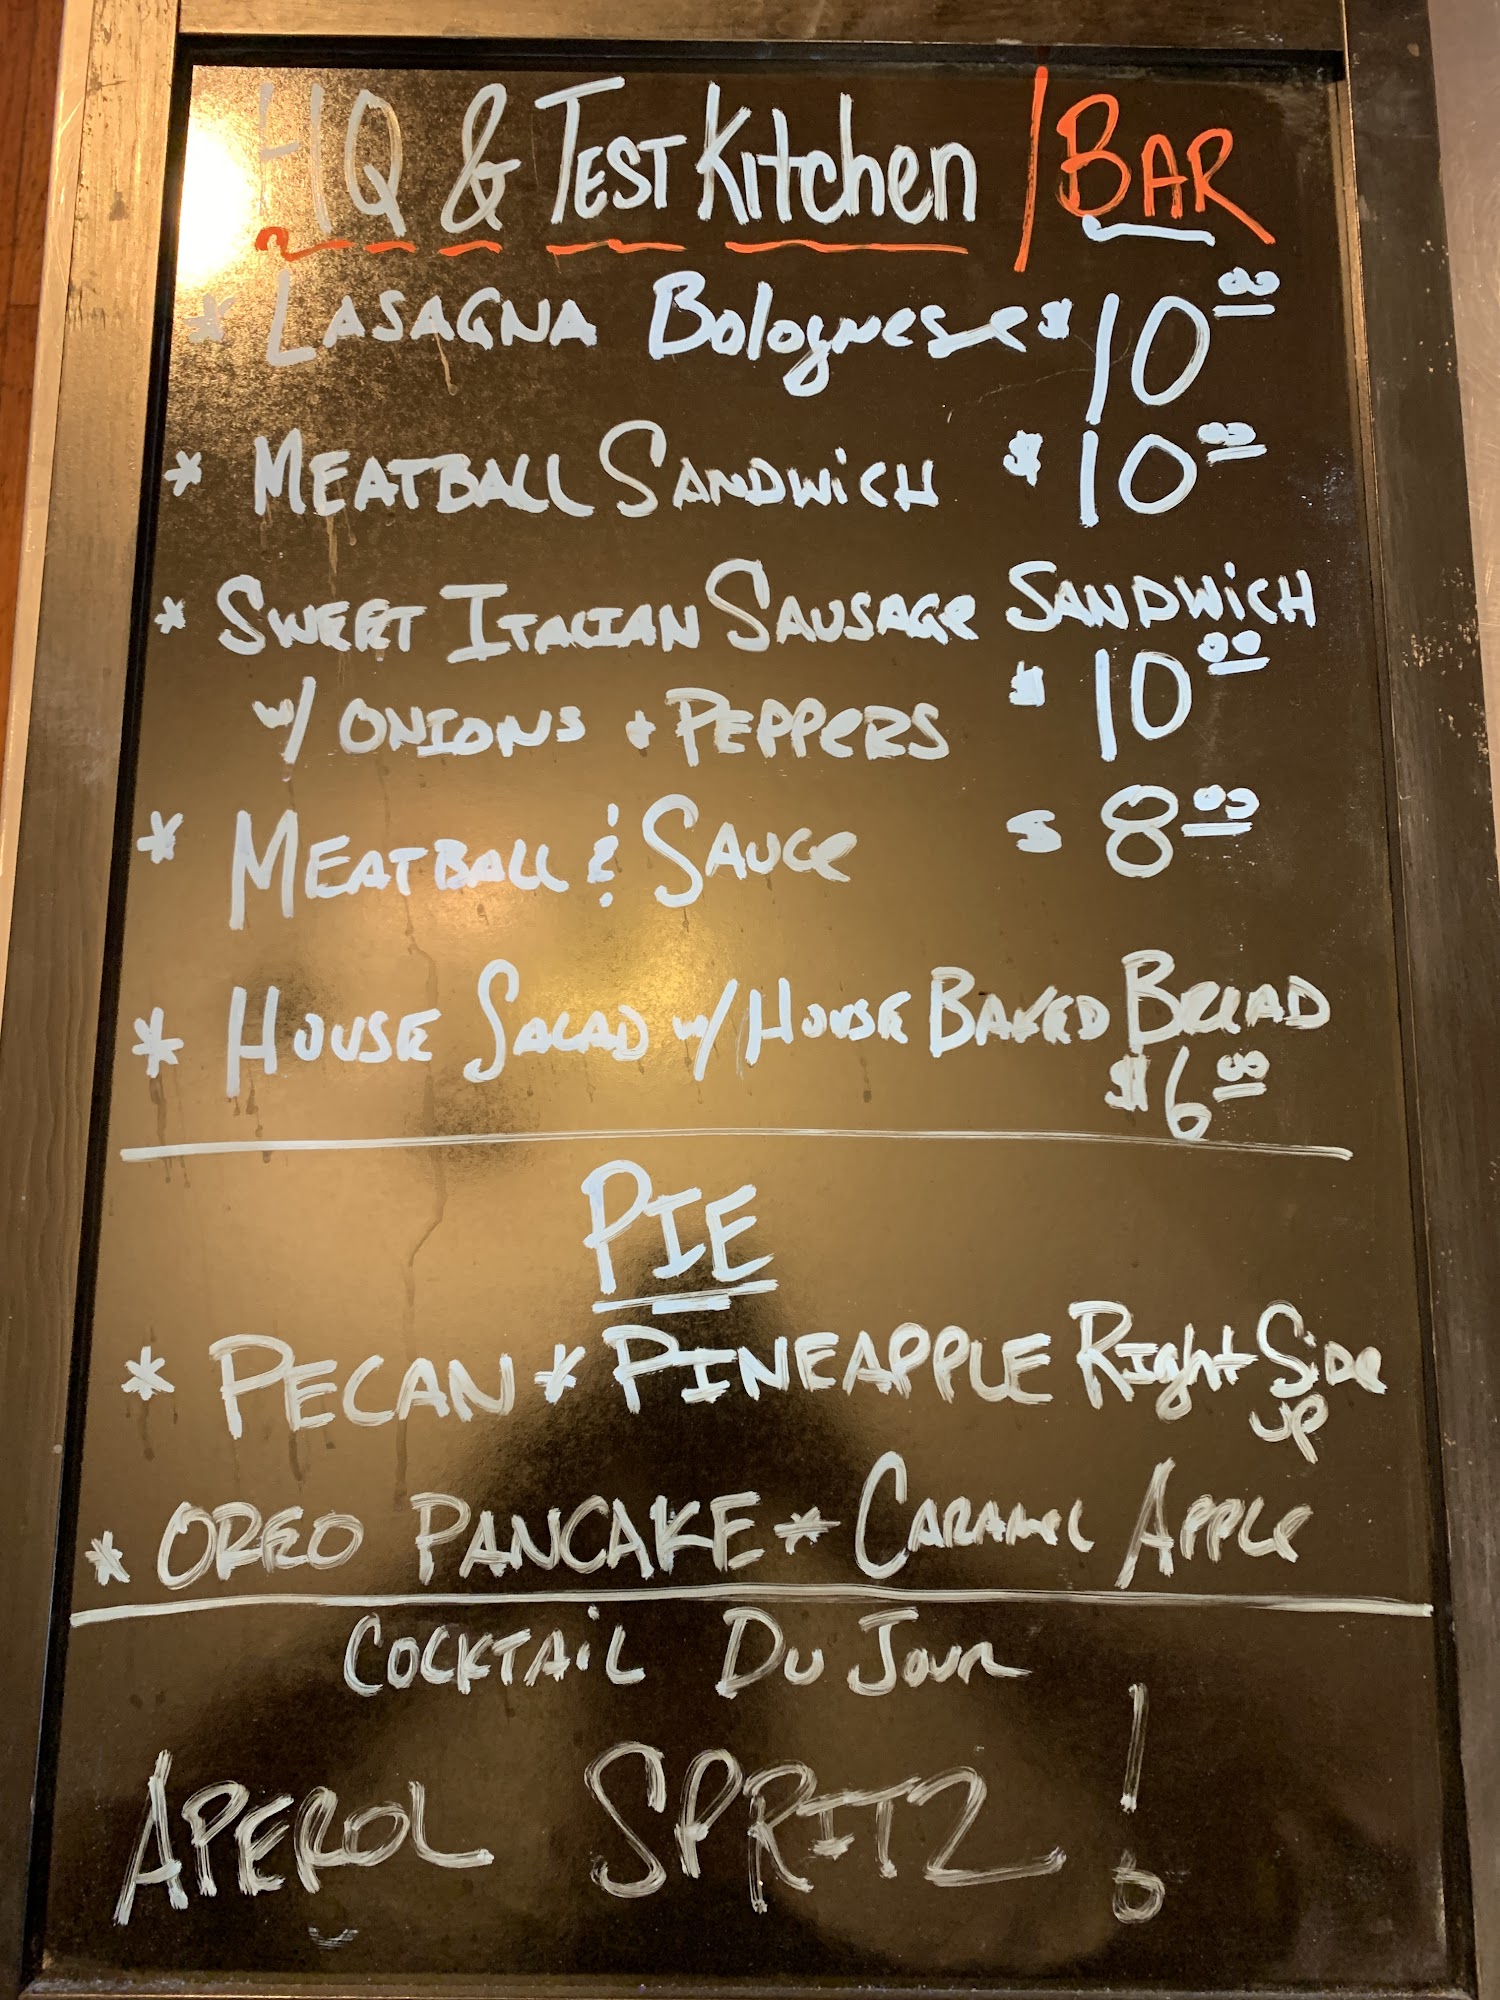 HQ & TEST Kitchen / BAR
* LASAGNA Bolognese $10.00
* MEATBALL SANDWiCH $10.00
* SWEET ITALIAN SAUSAGE SANDWiCH
w/ ONIONS + PEPPERS $10.00
* MEATBALL & SAUCE $8.00
* HOUSE SALAD w/ HOUSE BAKED BREAD
$6.00
PIE
* PECAN * PINEAPPLE Right Side
up
* OREO PANCAKE * CARAMEL APPLE
COCKTAiL DU JOUR
APEROL SPRITZ!